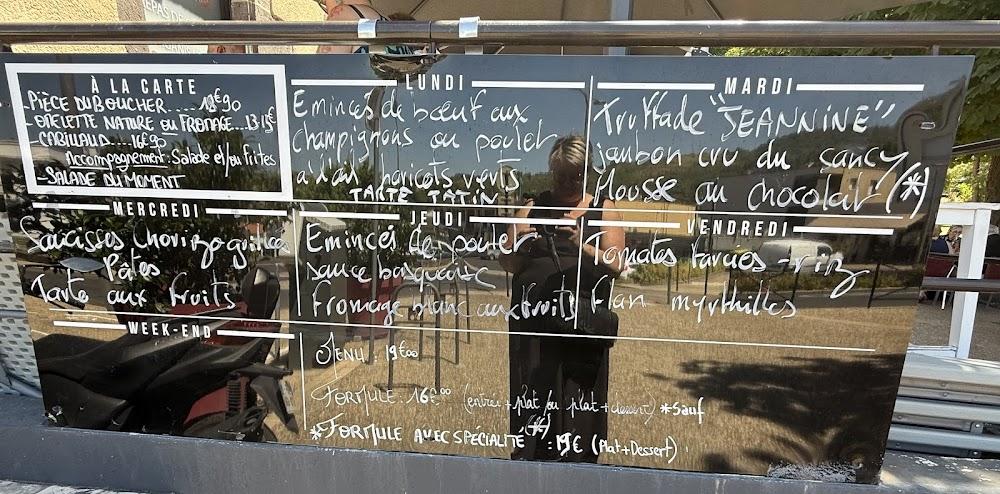 À LA CARTE
- PIÈCE DU BOUCHER.....18€90
- OMELETTE NATURE OU FROMAGE...13/15€
- CABILLAUD....16€90
Accompagnement: Salade et/ou frites
- SALADE DU MOMENT
LUNDI
Emincés de bœuf aux
champignons ou poulet
à l'ail haricots verts
TARTE TATIN
MARDI
Truffade "JEANNINE"
jambon cru du Sancy
Mousse au chocolat (*)
MERCREDI
Saucisses Chorizo grillées
Pâtes
Tarte aux fruits
JEUDI
Emincés de poulet
sauce basquaise
Fromage blanc aux fruits
VENDREDI
Tomates farcies - riz
Flan myrthilles
WEEK-END
MENU : 19€00
FORMULE : 16€00 (entrée + plat ou plat + dessert) *Sauf
*FORMULE AVEC SPÉCIALITÉ (*) : 19€ (Plat + Dessert)